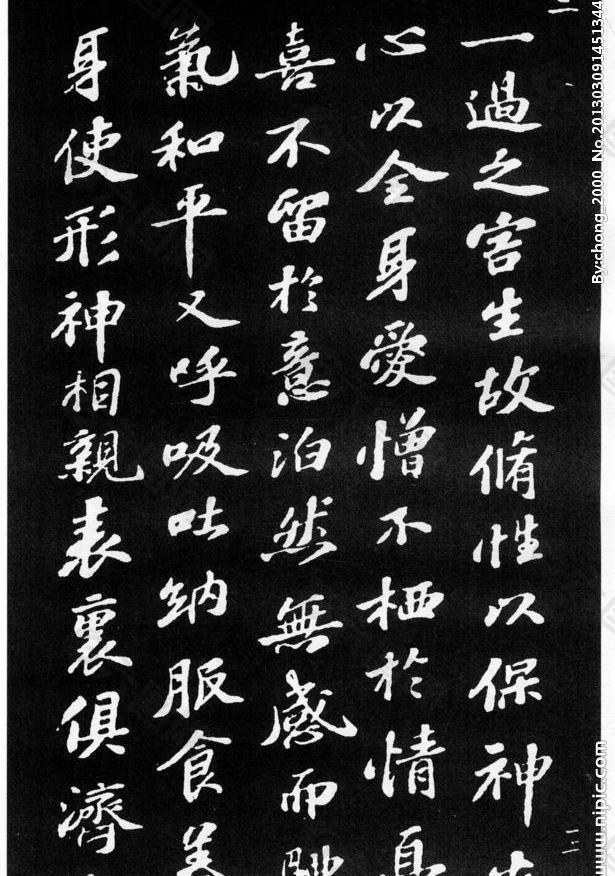 一過之害生故脩性以保神
心以全身愛憎不栖於情
喜不留於意泊然無感而
氣和平又呼吸吐納服食
身使形神相親表裏俱濟
By:chong_2000 No.20130309145134
www.nipic.com